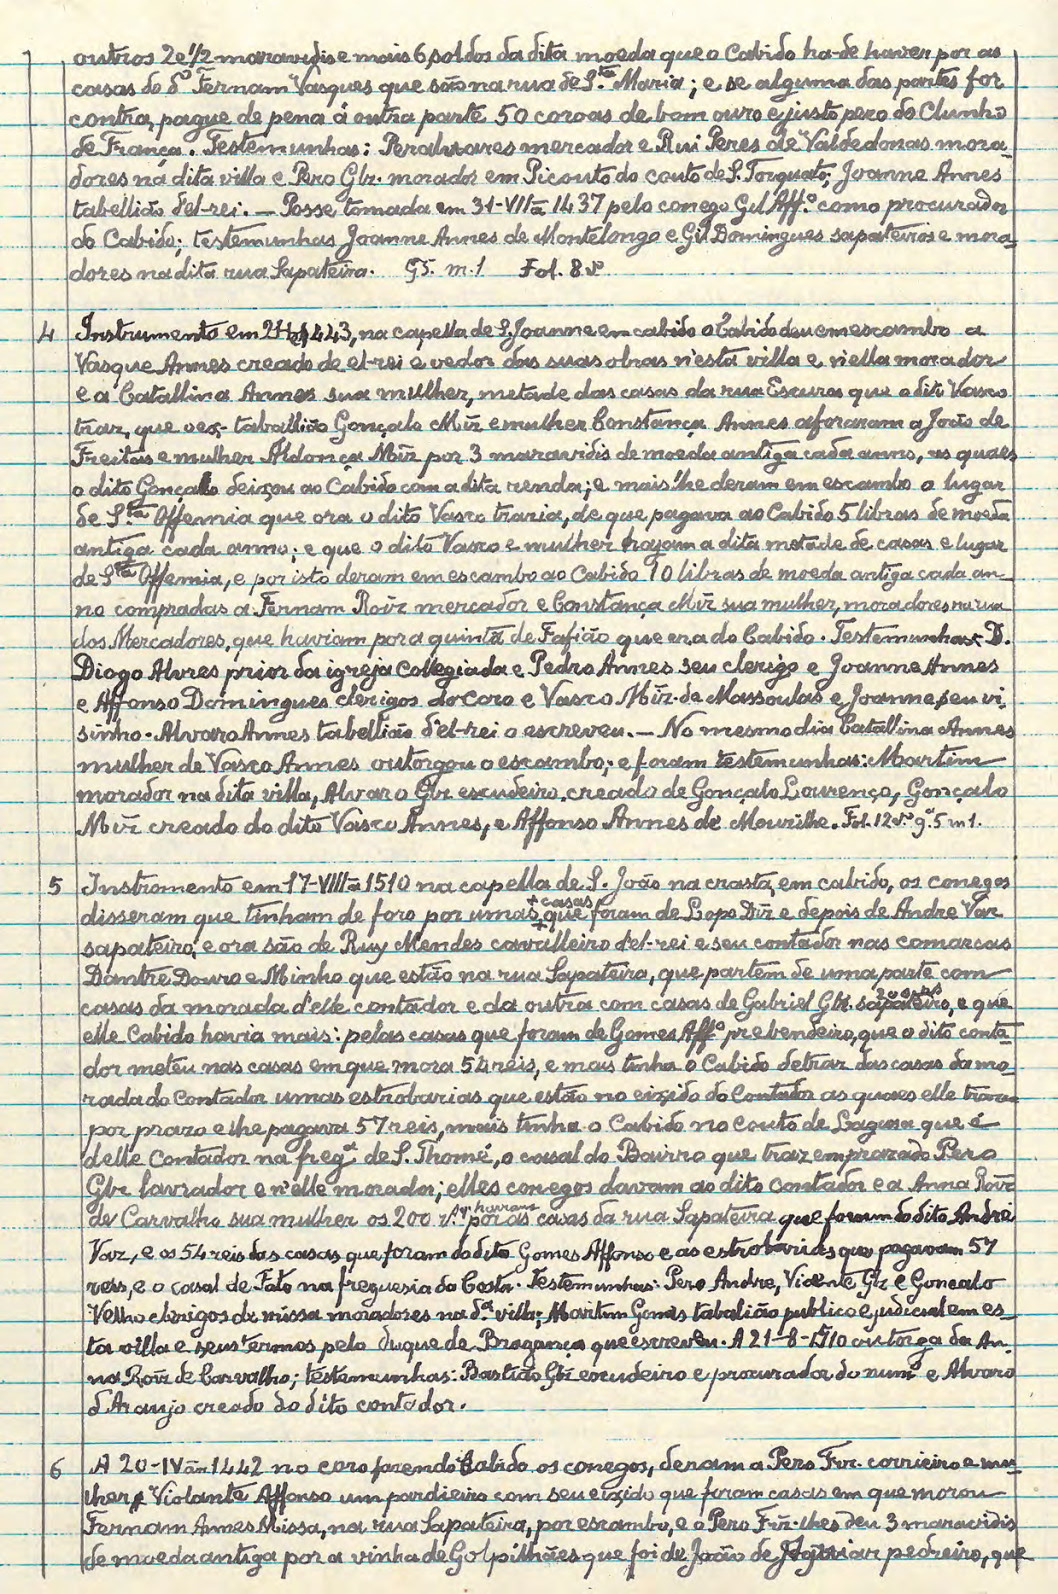 outros 2 e 1/2 maravidis e mais 6 soldos da dita moeda que o Cabido ha-de haver por as
casas do dº Fernam Vasques que são na rua de S.ta Maria; e se alguma das partes for
contra, pague de pena á outra parte 50 coroas de bom ouro e justo peso do Clunho
de França. Testemunhas: Peralvares mercador e Rui Peres de Valdedonas mora-
dores na dita villa e Pero Glz. morador em Picouto do couto de S. Torquato; Joanne Annes
tabellião d'el-rei. — Posse tomada em 31-VII-1437 pelo conego Gil Aff.º como procurador
do Cabido; testemunhas Joanne Annes de Montelongo e Gil Domingues sapateiros e mora-
dores na dita rua Sapateira. G5. m.1 Fol. 8 vº
4 Instrumento em 1443, na capella de S. Joanne em cabido o Cabido deu em escambo a
Vasque Annes creado de el-rei e vedor das suas obras n'esta villa e n'ella morador
e a Catallina Annes sua mulher, metade das casas da rua Escura que o dito Vasco
traz, que o ex-tabellião Gonçalo Miz e mulher Constança Annes aforaram a João de
Freitas e mulher Aldonça Miz por 3 maravidis de moeda antiga cada anno, as quaes
o dito Gonçalo deixou ao Cabido com a dita renda; e mais lhe deram em escambo o lugar
de S.ta Offemia que ora o dito Vasco traria, de que pagava ao Cabido 5 libras de moeda
antiga cada anno; e que o dito Vasco e mulher hajam a dita metade de casas e lugar
de S.ta Offemia, e por isto deram em escambo ao Cabido 10 libras de moeda antiga cada an-
no compradas a Fernam Roiz mercador e Constança Miz sua mulher, moradores na rua
dos Mercadores, que haviam por a quintã de Fafião que era do Cabido. Testemunhas: D.
Diogo Alvres prior da igreja Collegiada e Pedro Annes seu clerigo e Joanne Annes
e Affonso Domingues clerigos do coro e Vasco Miz de Massoulas e Joanne seu vi-
sinho. Alvaro Annes tabellião d'el-rei o escreveu. — No mesmo dia Catallina Annes
mulher de Vasco Annes outorgou o escambo; e foram testemunhas: Martim
morador na dita villa, Alvaro Glz escudeiro creado de Gonçalo Lourenço, Gonçalo
Miz creado do dito Vasco Annes, e Affonso Annes de Mourilhe. Fol. 12 vº gª. 5 m 1.
5 Instromento em 17-VIII-1510 na capella de S. João na crasta, em cabido, os conegos
disseram que tinham de foro por umas + casas que foram de Lopo Diz e depois de Andre Vaz
sapateiro, e ora são de Ruy Mendes cavalleiro d'el-rei e seu contador nas comarcas
Dantre Douro e Minho que estão na rua Sapateira, que partem de uma parte com
casas da morada d'elle contador e da outra com casas de Gabriel Glz. sapateiro, 200 reis e que
elle Cabido havia mais: pelas casas que foram de Gomes Aff.º prebendeiro, que o dito conta-
dor meteu nas casas em que mora 54 reis, e mais tinha o Cabido detraz das casas da mo-
rada do Contador umas estrobarias que estão no eixido do Contador as quaes elle trazia
por prazo e lhe pagava 57 reis, mais tinha o Cabido no couto de Lagoa que é
delle Contador na freg.ª de S. Thomé, o casal do Bairro que traz emprazado Pero
Glz lavrador e n'elle morador; elles conegos davam ao dito contador e a Anna Roiz
de Carvalho sua mulher os 200 rs. q. haviam por as casas da rua Sapateira que foram do dito André
Vaz, e os 54 reis das casas que foram do dito Gomes Affonso e as estrobarias que pagavam 57
reis, e o casal de Fato na freguesia da Costa. Testemunhas: Pero Andre, Vicente Glz e Goncalo
Velho clerigos de missa moradores na dª villa; Martim Gomes tabalião publico e judicial em es-
ta villa e seus termos pelo duque de Bragança que escreveu. A 21-8-1510 outorga da An-
na Roiz de Carvalho; testemunhas: Bastião Glz escudeiro e procurador do numº e Alvaro
d'Araujo creado do dito contador.
6 A 20-IV-1442 no coro fazendo Cabido os conegos, deram a Pero Frz. corrieiro e mu-
lher Violante Affonso um pardieiro com seu eixido que foram casas em que morou
Fernam Annes Missa, na rua Sapateira, por escambo, e o Pero Frz. lhes deu 3 maravidis
de moeda antiga por a vinha de Golpilhães que foi de João de pedreiro, que